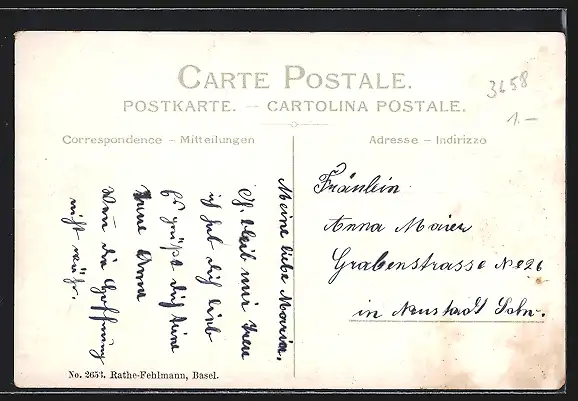 CARTE POSTALE.
POSTKARTE. – CARTOLINA POSTALE.
3658
1.–
Correspondence – Mitteilungen
Adresse – Indirizzo
Meine liebe Maria,
bleib mir treu
ich hab dich lieb
Es grüßt dich Deine
Anna
Wenn die Hoffnung
nicht wär.
Fräulein
Anna Maier
Grabenstrasse No 226
in Neustadt Schw.
No. 2653. Rathe-Fehlmann, Basel.